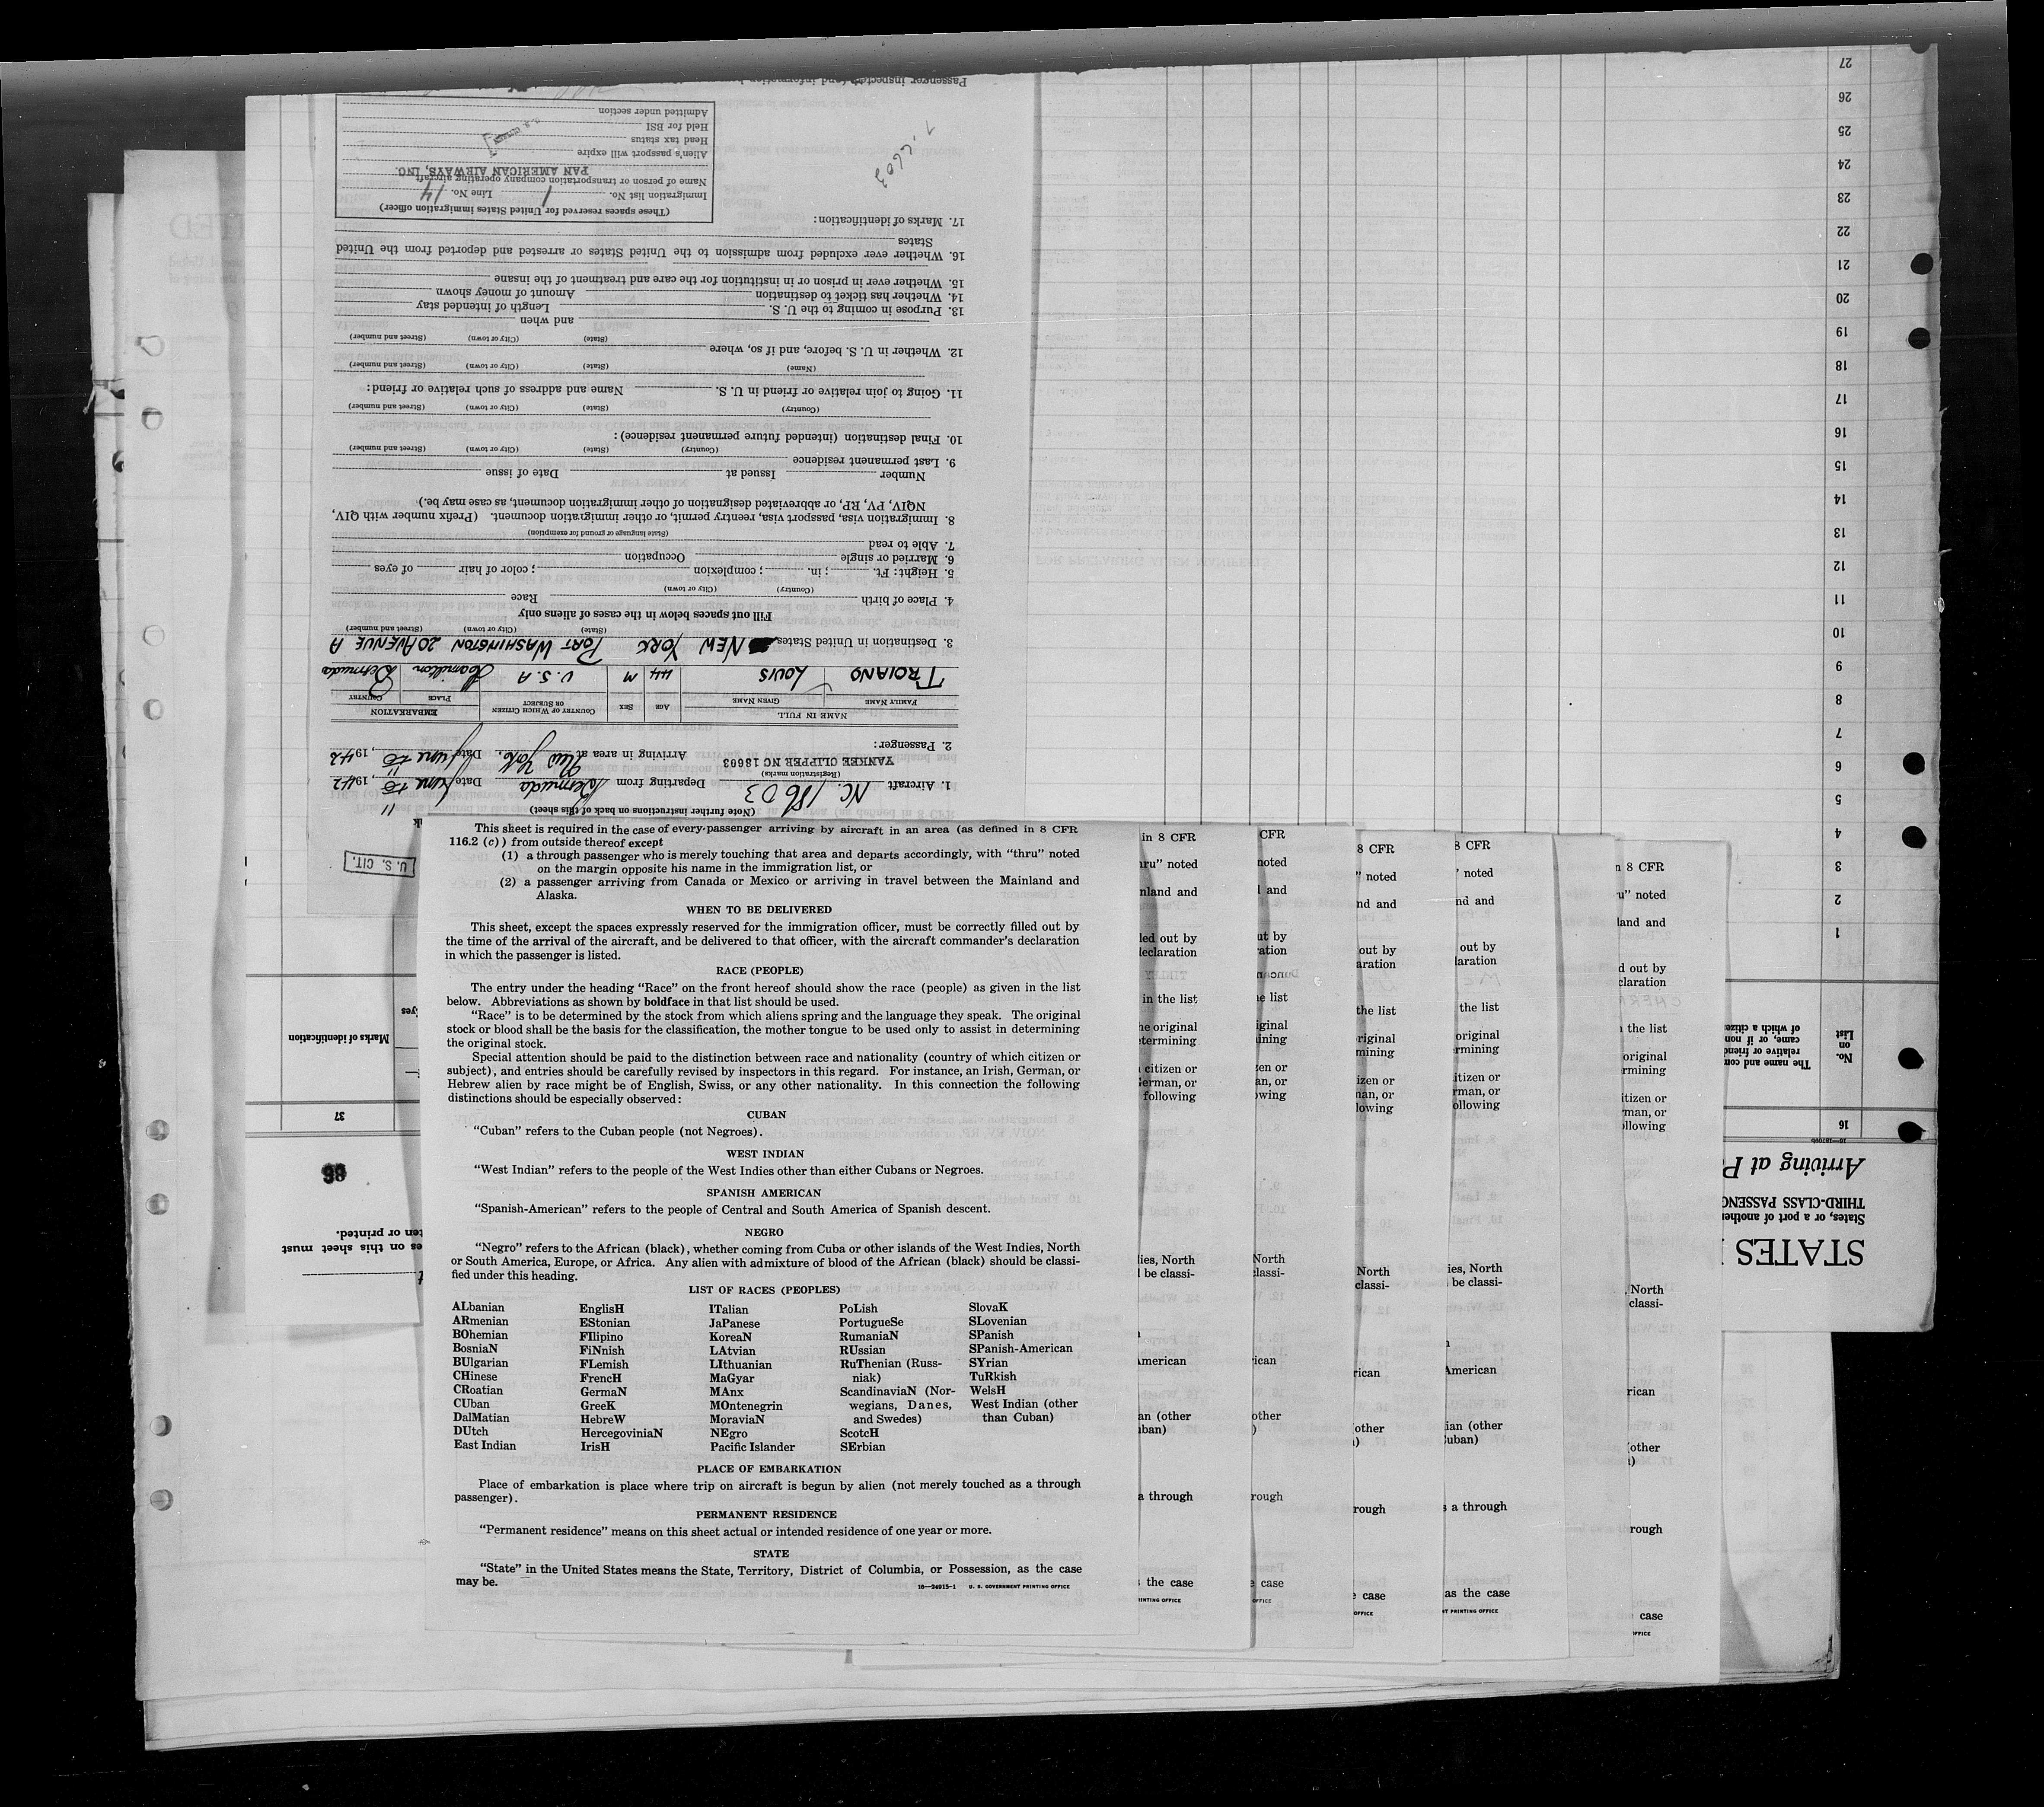 This sheet is required in the case of every passenger arriving by aircraft in an area (as defined in 8 CFR
116.2 (c)) from outside thereof except
(1) a through passenger who is merely touching that area and departs accordingly, with "thru" noted
on the margin opposite his name in the immigration list, or
(2) a passenger arriving from Canada or Mexico or arriving in travel between the Mainland and
Alaska.
WHEN TO BE DELIVERED
This sheet, except the spaces expressly reserved for the immigration officer, must be correctly filled out by
the time of the arrival of the aircraft, and be delivered to that officer, with the aircraft commander's declaration
in which the passenger is listed.
RACE (PEOPLE)
The entry under the heading "Race" on the front hereof should show the race (people) as given in the list
below. Abbreviations as shown by boldface in that list should be used.
"Race" is to be determined by the stock from which aliens spring and the language they speak. The original
stock or blood shall be the basis for the classification, the mother tongue to be used only to assist in determining
the original stock.
Special attention should be paid to the distinction between race and nationality (country of which citizen or
subject), and entries should be carefully revised by inspectors in this regard. For instance, an Irish, German, or
Hebrew alien by race might be of English, Swiss, or any other nationality. In this connection the following
distinctions should be especially observed:
CUBAN
"Cuban" refers to the Cuban people (not Negroes).
WEST INDIAN
"West Indian" refers to the people of the West Indies other than either Cubans or Negroes.
SPANISH AMERICAN
"Spanish-American" refers to the people of Central and South America of Spanish descent.
NEGRO
"Negro" refers to the African (black), whether coming from Cuba or other islands of the West Indies, North
or South America, Europe, or Africa. Any alien with admixture of blood of the African (black) should be classi-
fied under this heading.
LIST OF RACES (PEOPLES)
ALbanian
ARmenian
BOhemian
BosniaN
BUlgarian
CHinese
CRoatian
CUban
DalMatian
DUtch
East Indian
EnglisH
EStonian
FIlipino
FiNnish
FLemish
FrencH
GermaN
GreeK
HebreW
HercegoviniaN
IrisH
ITalian
JaPanese
KoreaN
LAtvian
LIthuanian
MaGyar
MAnx
MOntenegrin
MoraviaN
NEgro
Pacific Islander
PoLish
PortugueSe
RumaniaN
RUssian
RuThenian (Russ-
niak)
ScandinaviaN (Nor-
wegians, Danes,
and Swedes)
ScotcH
SErbian
SlovaK
SLovenian
SPanish
SPanish-American
SYrian
TuRkish
WelsH
West Indian (other
than Cuban)
PLACE OF EMBARKATION
Place of embarkation is place where trip on aircraft is begun by alien (not merely touched as a through
passenger).
PERMANENT RESIDENCE
"Permanent residence" means on this sheet actual or intended residence of one year or more.
STATE
"State" in the United States means the State, Territory, District of Columbia, or Possession, as the case
may be.
16—24915-1 U. S. GOVERNMENT PRINTING OFFICE
U. S. CIT.
(Note further instructions on back of this sheet)
11
1. Aircraft NC. 18603 Departing from Bermuda Date June 1942
(Registration marks)
YANKEE CLIPPER NC 18603 Arriving in area at New York Date June 11, 1942
2. Passenger:
NAME IN FULL
FAMILY NAME GIVEN NAME AGE SEX COUNTRY OF WHICH CITIZEN OR SUBJECT EMBARKATION PLACE COUNTRY
TROIANO LOUIS 44 M U.S.A Hamilton Bermuda
3. Destination in United States NEW YORK PORT WASHINGTON 20 AVENUE A
(State) (City or town) (Street and number)
Fill out spaces below in the cases of aliens only
4. Place of birth Race
(Country) (City or town)
5. Height: Ft. ; in. ; complexion ; color of hair of eyes
6. Married or single Occupation
7. Able to read
(State language or ground for exemption)
8. Immigration visa, passport visa, reentry permit, or other immigration document. (Prefix number with QIV,
NQIV, PV, RP, or abbreviated designation of other immigration document, as case may be.)
Number Issued at Date of issue
9. Last permanent residence
(Country) (State) (City or town) (Street and number)
10. Final destination (intended future permanent residence):
(Country) (State) (City or town) (Street and number)
11. Going to join relative or friend in U. S. Name and address of such relative or friend:
(Name) (State) (City or town) (Street and number)
12. Whether in U. S. before, and if so, where
(State) (City or town) (Street and number)
and when
13. Purpose in coming to the U. S. Length of intended stay
14. Whether has ticket to destination Amount of money shown
15. Whether ever in prison or in institution for the care and treatment of the insane
16. Whether ever excluded from admission to the United States or arrested and deported from the United
States
17. Marks of identification:
(These spaces reserved for United States immigration officer)
Immigration list No. 1 Line No. 14
Name of person or transportation company operating aircraft
PAN AMERICAN AIRWAYS, INC.
Alien's passport will expire
Head tax status
Held for BSI
Admitted under section
Passenger inspected
STATES
States, or a port of another
THIRD-CLASS PASSENG
Arriving at P
16
No. on List
The name and com
relative or friend
came, or if non
of which a citize
1
2
3
4
5
6
7
8
9
10
11
12
13
14
15
16
17
18
19
20
21
22
23
24
25
26
27
es on this sheet must
ten or printed.
98
37
Marks of identification